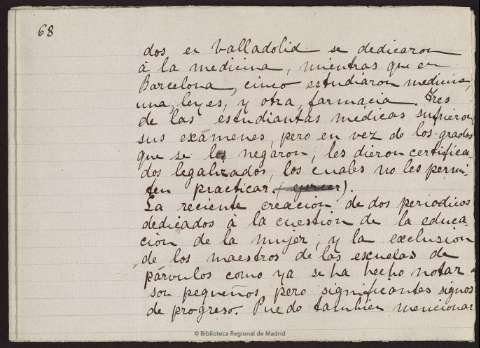 68
dos, en Valladolid se dedicaron
á la medicina, mientras que en
Barcelona, cinco estudiaron medicina,
una leyes, y otra, farmacia. Tres
de las estudiantas médicas sufrieron
sus exámenes, pero en vez de los grados
que se les negaron, les dieron certifica
dos legalizados, los cuales no les permi
ten practicar. ).
La reciente creación de dos periodicos
dedicados á la cuestión de la educa
ción de la mujer, y la exclusión
de los maestros de las escuelas de
párvulos como ya se ha hecho notar
son pequeños, pero significantes signos
de progreso. Puedo también mencionar
© Biblioteca Regional de Madrid